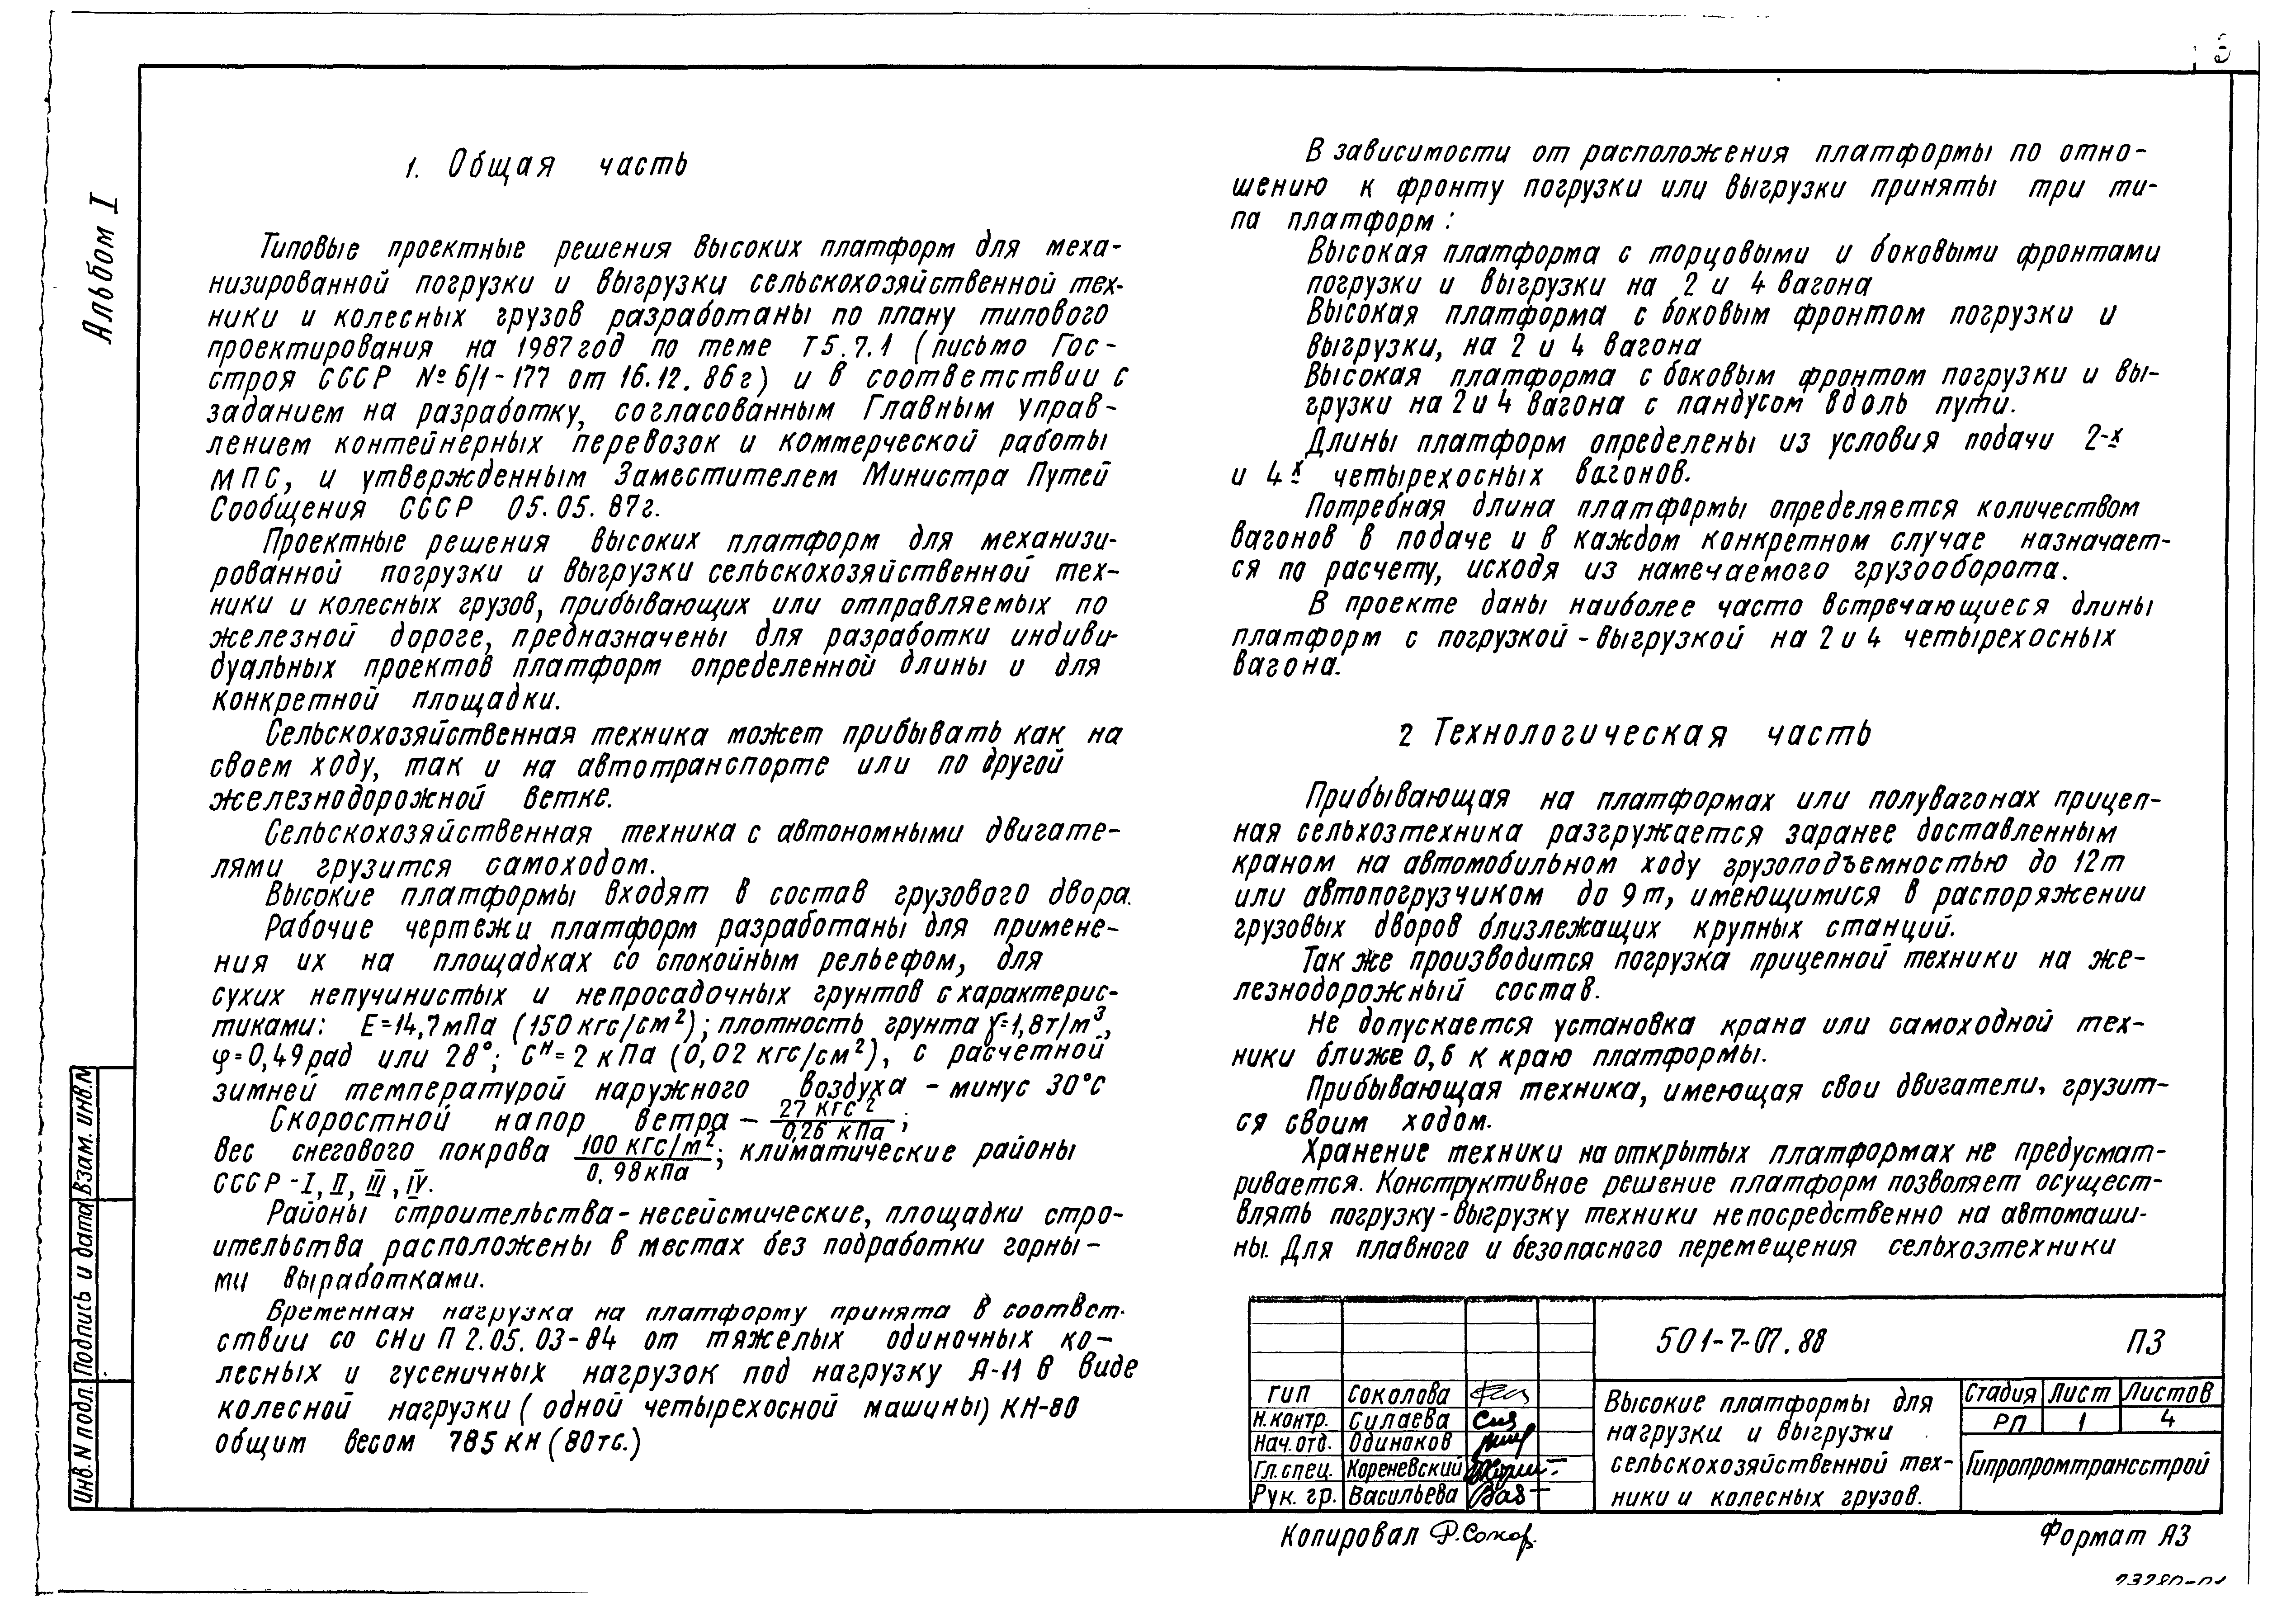 3
Альбом I
1. Общая часть
Типовые проектные решения высоких платформ для меха-
низированной погрузки и выгрузки сельскохозяйственной тех-
ники и колесных грузов разработаны по плану типового
проектирования на 1987 год по теме Т5.7.1 (письмо Гос-
строя СССР № 6/1-177 от 16.12.86г) и в соответствии с
заданием на разработку, согласованным Главным управ-
лением контейнерных перевозок и коммерческой работы
МПС, и утвержденным Заместителем Министра Путей
Сообщения СССР 05.05.87г.
Проектные решения высоких платформ для механизи-
рованной погрузки и выгрузки сельскохозяйственной тех-
ники и колесных грузов, прибывающих или отправляемых по
железной дороге, предназначены для разработки индиви-
дуальных проектов платформ определенной длины и для
конкретной площадки.
Сельскохозяйственная техника может прибывать как на
своем ходу, так и на автотранспорте или по другой
железнодорожной ветке.
Сельскохозяйственная техника с автономными двигате-
лями грузится самоходом.
Высокие платформы входят в состав грузового двора.
Рабочие чертежи платформ разработаны для примене-
ния их на площадках со спокойным рельефом, для
сухих непучинистых и непросадочных грунтов с характерис-
тиками: Е=14,7мПа (150кгс/см²); плотность грунта γ=1,8т/м³,
φ=0,49рад или 28°; Сᴴ=2кПа (0,02кгс/см²), с расчетной
зимней температурой наружного воздуха - минус 30°с
Скоростной напор ветра - 27 кгс²/0,26 кПа;
вес снегового покрова 100 кгс/м²/0.98кПа; климатические районы
СССР - I, II, III, IV.
Районы строительства - несейсмические, площадки стро-
ительства расположены в местах без подработки горны-
ми выработками.
Временная нагрузка на платформу принята в соответ-
ствии со СНиП 2.05.03-84 от тяжелых одиночных ко-
лесных и гусеничных нагрузок под нагрузку А-11 в виде
колесной нагрузки (одной четырехосной машины) КН-80
общим весом 785кн (80тс.)
В зависимости от расположения платформы по отно-
шению к фронту погрузки или выгрузки приняты три ти-
па платформ:
Высокая платформа с торцовыми и боковыми фронтами
погрузки и выгрузки на 2 и 4 вагона
Высокая платформа с боковым фронтом погрузки и
выгрузки, на 2 и 4 вагона
Высокая платформа с боковым фронтом погрузки и вы-
грузки на 2и 4 вагона с пандусом вдоль пути.
Длины платформ определены из условия подачи 2-х
и 4х четырехосных вагонов.
Потребная длина платформы определяется количеством
вагонов в подаче и в каждом конкретном случае назначает-
ся по расчету, исходя из намечаемого грузооборота.
В проекте даны наиболее часто встречающиеся длины
платформ с погрузкой-выгрузкой на 2 и 4 четырехосных
вагона.
2 Технологическая часть
Прибывающая на платформах или полувагонах прицеп-
ная сельхозтехника разгружается заранее доставленным
краном на автомобильном ходу грузоподъемностью до 12т
или автопогрузчиком до 9т, имеющимися в распоряжении
грузовых дворов близлежащих крупных станций.
Так же производится погрузка прицепной техники на же-
лезнодорожный состав.
Не допускается установка крана или самоходной тех-
ники ближе 0,6 к краю платформы.
Прибывающая техника, имеющая свои двигатели, грузит-
ся своим ходом.
Хранение техники на открытых платформах не предусмат-
ривается. Конструктивное решение платформ позволяет осущест-
влять погрузку-выгрузку техники непосредственно на автомаши-
ны. Для плавного и безопасного перемещения сельхозтехники
501-7-07.88 ПЗ
ГИП Соколова
Н.контр. Силаева
Нач.отд. Одиноков
Гл.спец. Кореневский
Рук. гр. Васильева
Высокие платформы для
нагрузки и выгрузки
сельскохозяйственной тех-
ники и колесных грузов.
Стадия Лист Листов
РП 1 4
Гипропромтрансстрой
Копировал
Формат А3
23280-01
Взам. инв.№
Подпись и дата
Инв.N подл.